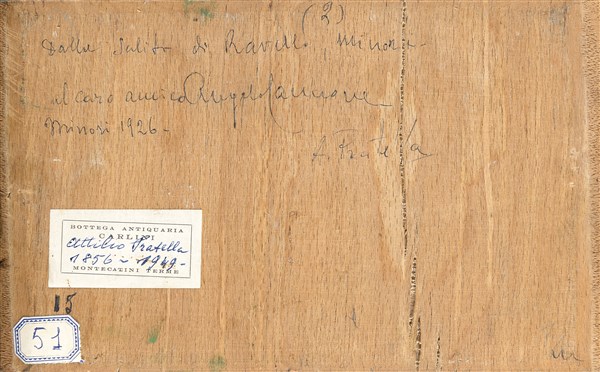 (2)
Dalla Salita di Ravello, Minori -
al caro amico Angelo
Minori 1926 -
A. Pratella
BOTTEGA ANTIQUARIA
CARLINI
Attilio Pratella
1856 - 1949 -
MONTECATINI TERME
15
51